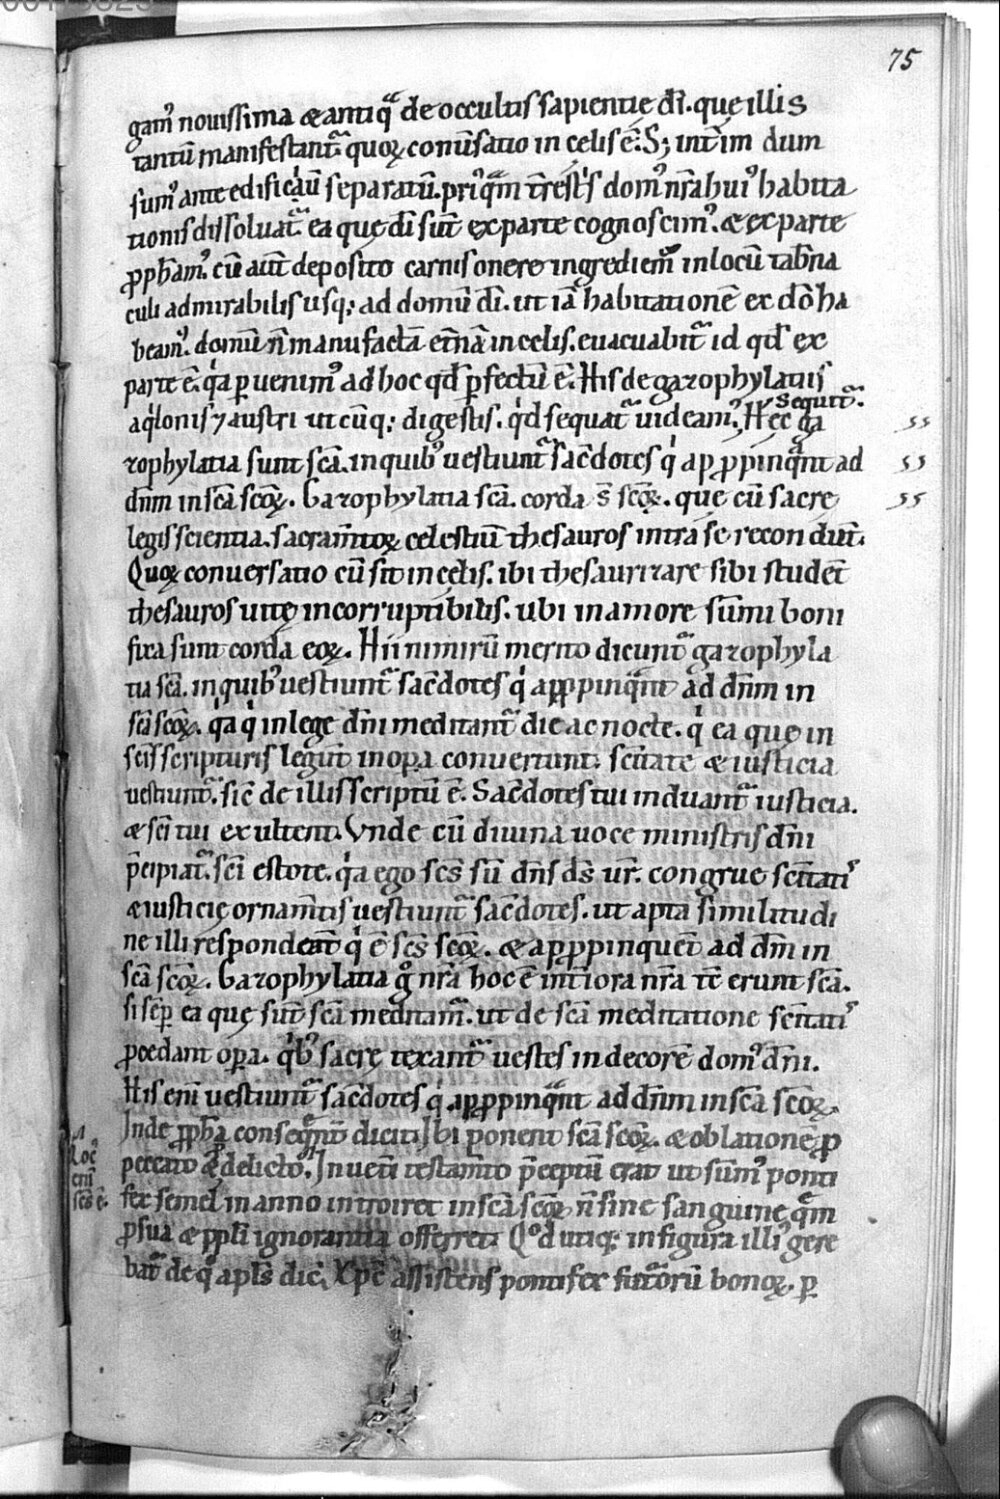 75
gam᷒ nouissima & antiq̃ de occultis sapientię dı̄. quę illis
tantū manifestant᷑ quoꝝ conūsatio in cęlis ē. Sꝫ intı̄m dum
sum᷒ ante edificıū separatū. priꝰq̃m t̄rest̄s dom᷒ nr̄a hui᷒ habita
tionis dissoluat᷑. ea quę dı̄ sūt ex parte cognoscim᷒. & ex parte
ꝓph̄am᷒. cū aūt deposito carnis onere ingrediem᷒ in locū tab̄na
culi admirabilis usqꝫ ad domū dı̄. ut iā habitationē ex dō ha
beam᷒. domū n̄ manufactā et̄nā in celis. euacuabit᷑ id qd̄ ex
parte ē. qͥa ꝑuenim᷒ ad hoc qd̄ ꝑfectū ē. His de gazophylatiis
Sequit᷑.
aqͥlonis ⁊ austri utcūqꝫ digestis. qͥd sequat᷑ uideam᷒. Hęc ga
zophylatia sunt scā. in quibꝰ uestiunt᷑ sac̄dotes qͥ apꝓpinq̃nt ad
dn̄m in scā scōꝝ. Gazophylatia scā. corda s̄ scōꝝ. quę cū sacrę
legis scientia. sacram̄toꝝ celestiū thesauros intra se recondūt.
Quoꝝ conuersatio cū sit in cęlis. ibi thesaurizare sibi studēt
thesauros uitę incorruptibilis. ubi in amore sūmi boni
fixa sunt corda eoꝝ. Hii nimirū merito dicunt᷑ gazophyla
tia scā. in quibꝰ uestiunt᷑ sac̄dotes qͥ apꝓpinq̃nt ad dn̄m in
scā scōꝝ. qͥa qͥ in lege dn̄i meditant᷑ die ac nocte. qͥ ea quę in
scīs scripturis legūt in opa conuertunt. scītate & iusticia
uestiunt᷑. sic̄ de illis scriptū ē. Sac̄dotes tui induant᷑ iusticia.
& scī tui exultent. Vnde cū diuina uoce ministris dn̄i
p̄cipiat᷑. scī estote. qͥa ego scs̄ sū dn̄s ds̄ ur̄. congrue scītatiꝰ
& iusticię ornam̄tis uestiunt᷑ sac̄dotes. ut apta similitudi
ne illi respondeāt qͥ ē scs̄ scōꝝ. & apꝓpinquēt ad dn̄m in
scā scōꝝ. Gazophylatia gͦ nr̄a hoc ē int̄iora nr̄a tc̄ erunt scā.
si sēꝑ ea quę sūt scā meditam᷑. ut de scā meditatione scītatiꝰ
ꝓcedant opa. qͥbꝰ sacrę texant᷑ uestes in decorē dom᷒ dn̄i.
His enī uestiunt᷑ sac̄dotes qͥ apꝓpinq̃nt ad dn̄m in scā scōꝝ.
Inde ꝓph̄a conseq̃nt᷑ dicit. Ibi ponent scā scōꝝ. & oblationē ꝓ
Locꝰ
enī
scs̄ ē.
peccato & ꝓ delicto. In uet̄i testam̄to p̄ceptū erat ut sūm᷒ ponti
fex semel in anno introiret in scā scōꝝ n̄ sine sanguine q̃m
ꝓ sua & ppl̄i ignorantia offerret. Qͦd utiqꝫ in figura illi᷒ gere
bat᷑ de qͦ apl̄s dic̄. Xp̄c assistens pontifex futuroꝝ bonoꝝ. ꝑ